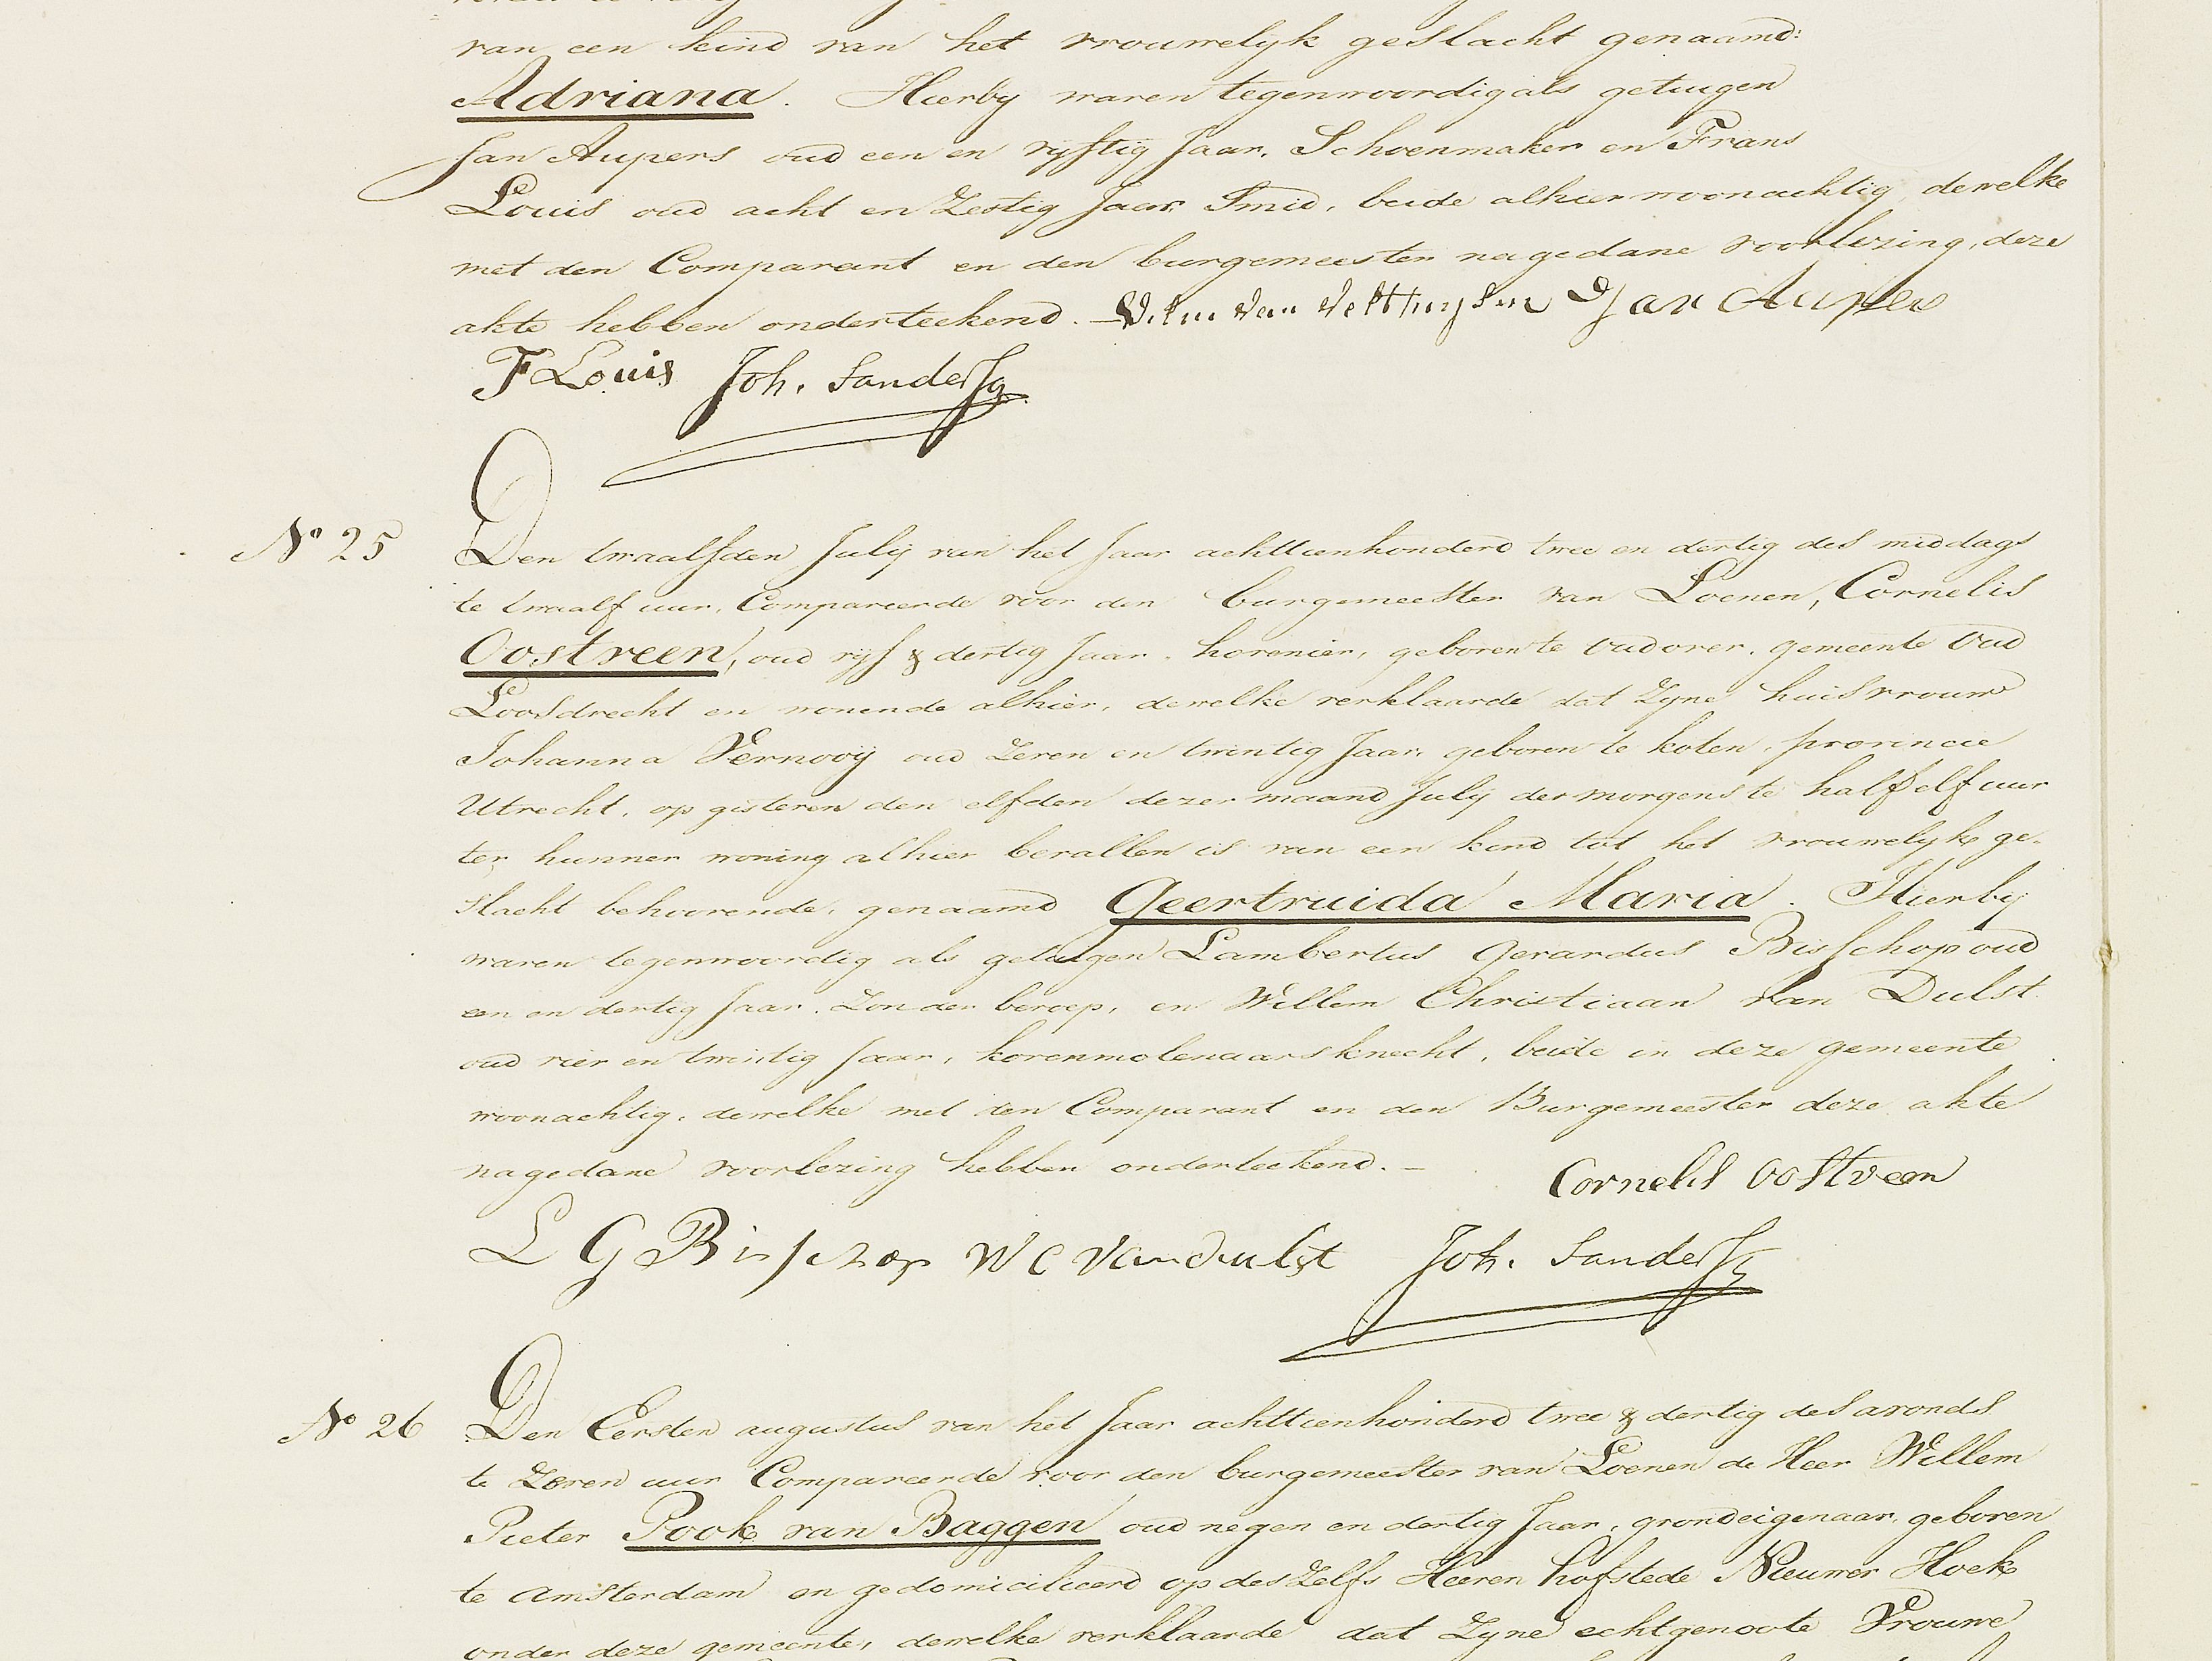 van een kind van het vrouwelyk geslacht genaamd:
Adriana. Hierby waren tegenwoordig als getuigen
Jan Aupers oud een en vyftig Jaar, Schoenmaker en Frans
Louis oud acht en Zestig Jaar Smid, beide alhier woonachtig, dewelke
met den Comparant en den burgemeester na gedane voorlezing, deze
akte hebben onderteekend. Wilm van Velthuysen Jan Aupers
F Louis Joh. Sanders
Nº 25
Den twaalfden July van het Jaar achttienhonderd twee en dertig des middags
te twaalf uur, Compareerde voor den burgemeester van Loenen, Cornelis
Oostveen, oud vyf & dertig Jaar, hovenier, geboren te Oudover, gemeente Oud
Loosdrecht en wonende alhier, dewelke verklaarde dat Zyne huisvrouw
Johanna Vernooy oud Zeven en twintig Jaar, geboren te koten, provincie
Utrecht, op gisteren den elfden dezer maand July des morgens te half elf uur
ter hunner woning alhier bevallen is van een kind tot het vrouwelyk ge-
slacht behoorende, genaamd Geertruida Maria. Hierby
waren tegenwoordig als getuigen Lambertus Gerardus Bisschop oud
een en dertig Jaar, Zonder beroep, en Willem Christiaan van Dulst
oud vier en twintig Jaar, korenmolenaarsknecht, beide in deze gemeente
woonachtig, dewelke met den Comparant en den Burgemeester deze akte
na gedane voorlezing hebben onderteekend. —
Cornelis Oostveen
L G Bisschop W C van dulst Joh. Sanders
Nº 26
Den Eersten augustus van het Jaar achttienhonderd twee & dertig des avonds
te Zeven uur Compareerde voor den burgemeester van Loenen de Heer Willem
Pieter Pook van Baggen oud negen en dertig Jaar, grondeigenaar, geboren
te Amsterdam en gedomicilieerd op deszelfs Heeren hofstede Nieuwer Hoek
onder deze gemeente, dewelke verklaarde dat Zyne echtgenoote Vrouwe